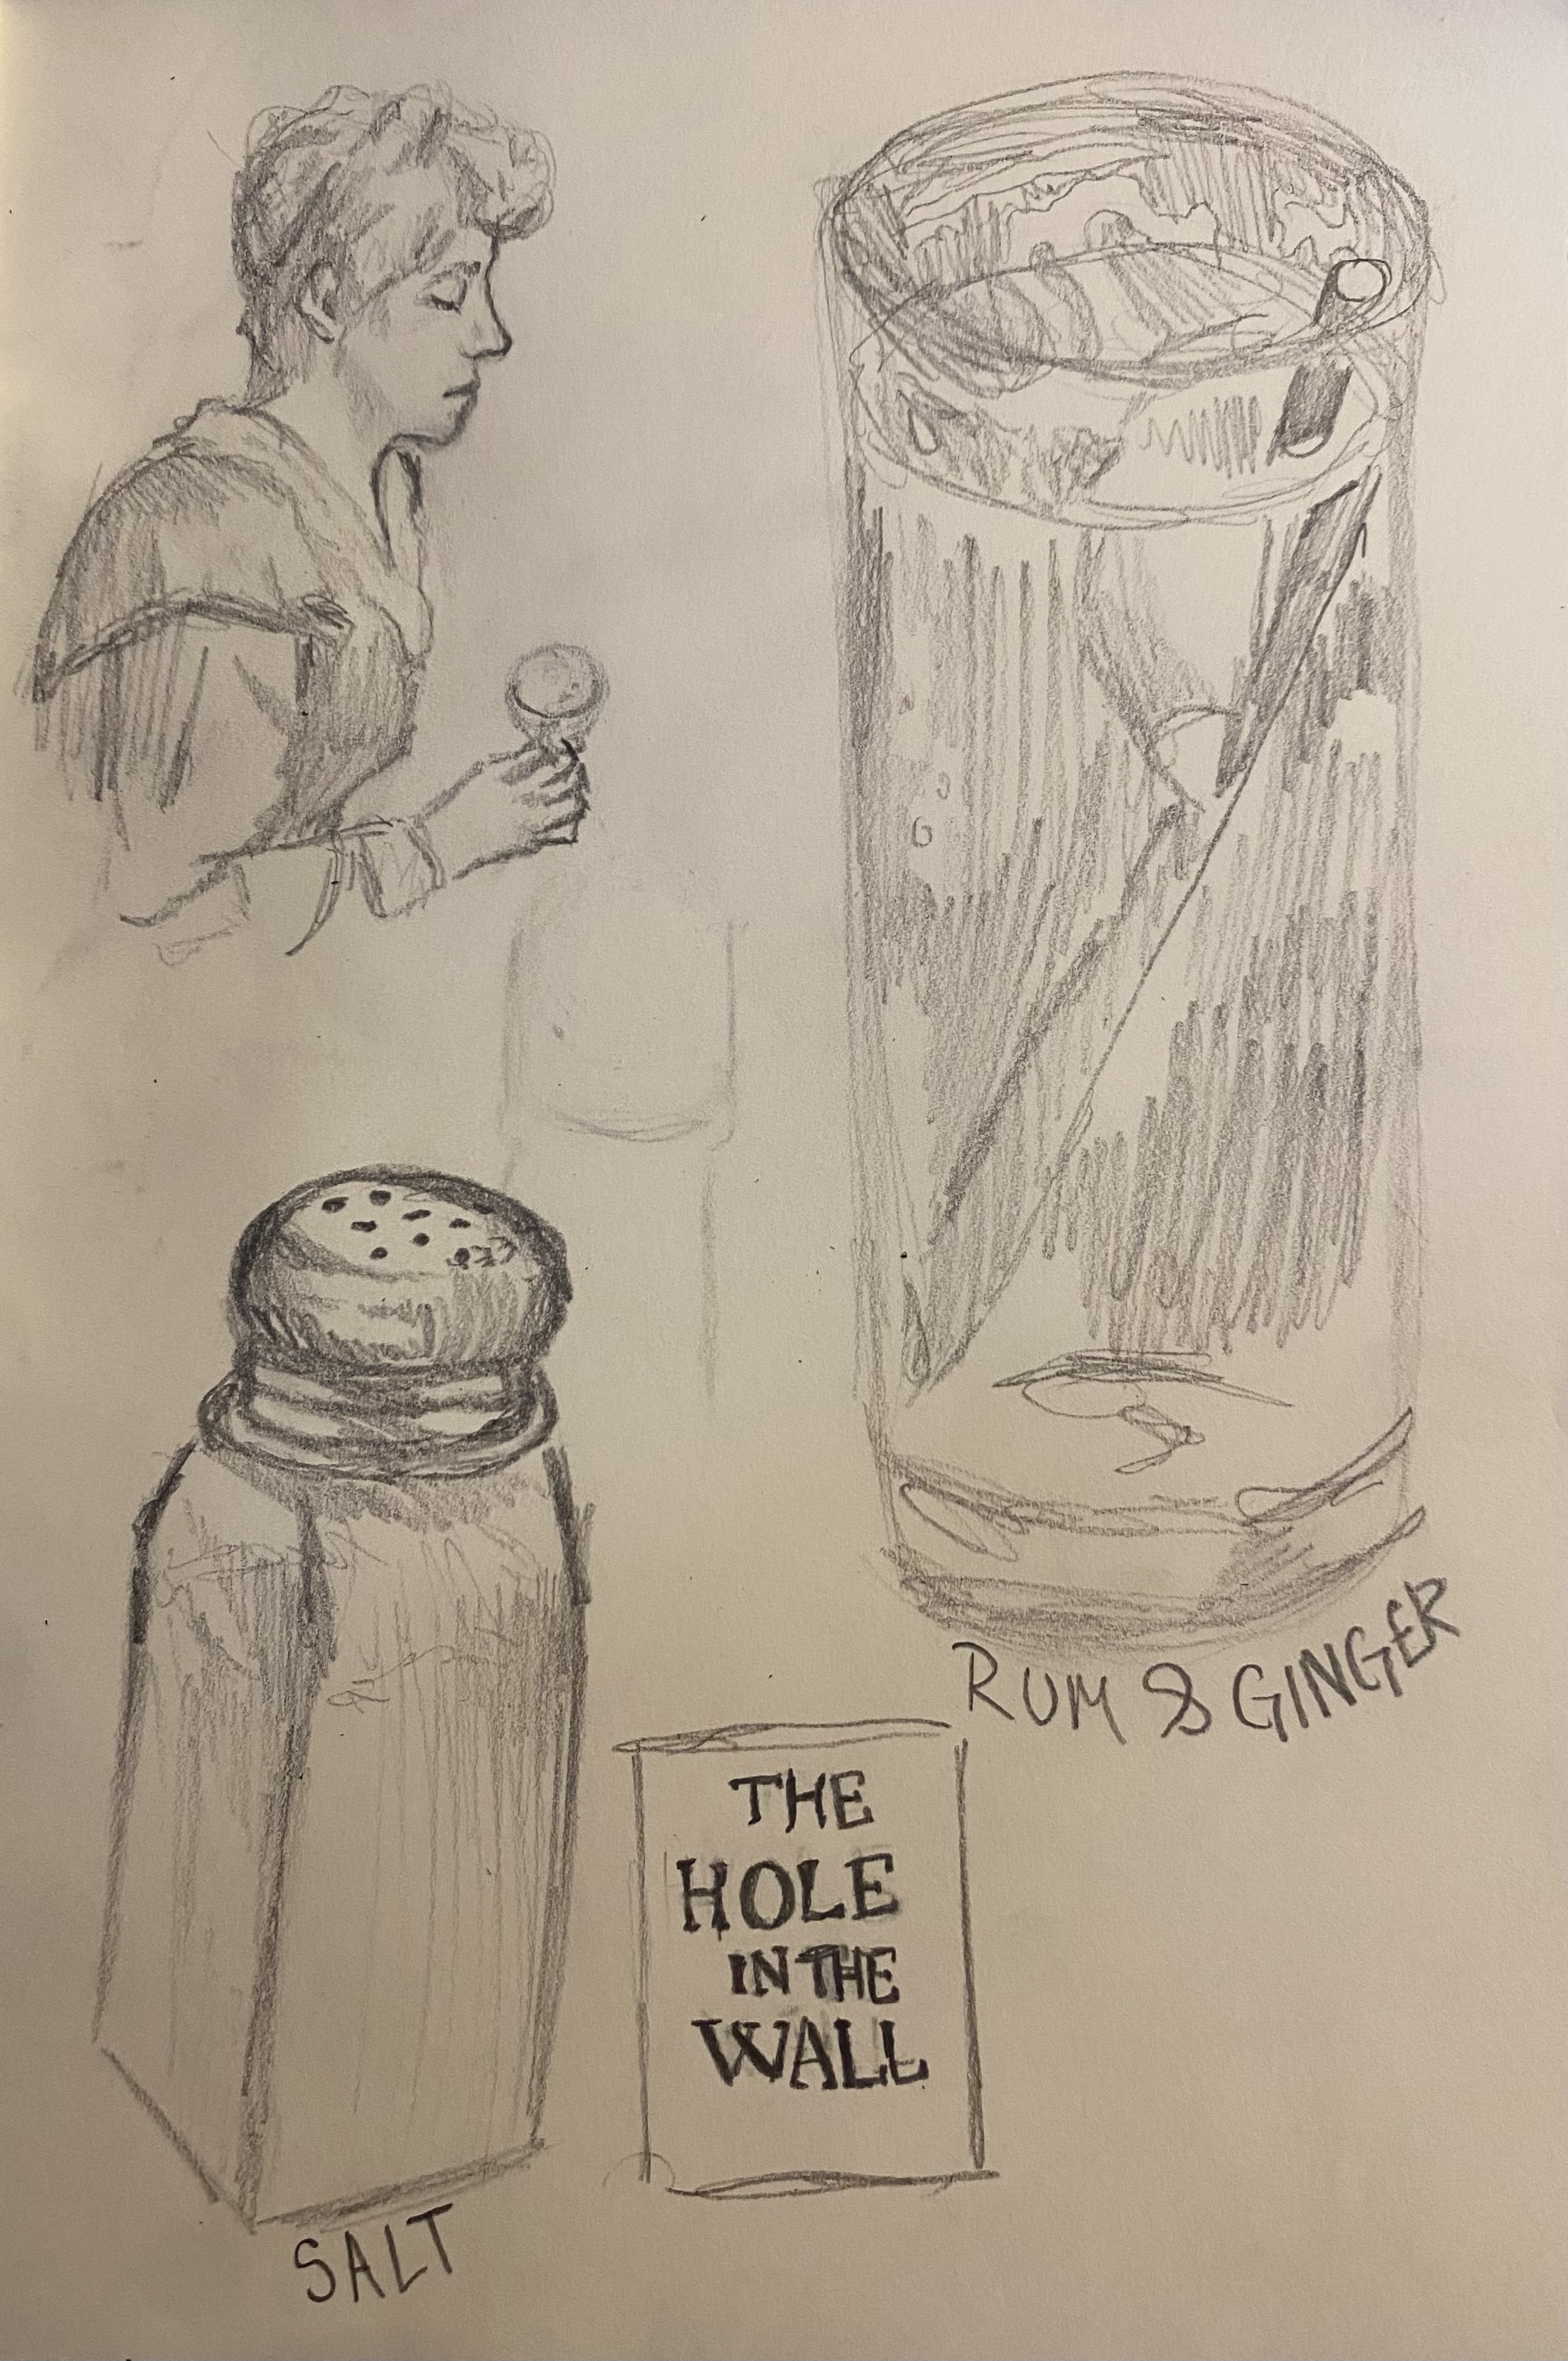 RUM & GINGER
THE
HOLE
IN THE
WALL
SALT